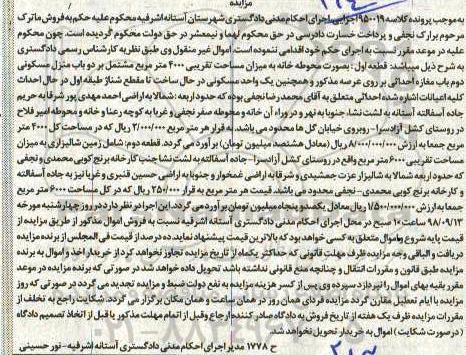 مزایده
به موجب پرونده کلاسه ۹۵۰۰۱۹ اجرایی اجرای احکام مدنی دادگستری شهرستان آستانه اشرفیه محکوم علیه حکم به فروش ماترک
مرحوم بابک نجفی و پرداخت خسارت دادرسی در حق محکوم لهما و نیمعشر در حق دولت محکوم گردیده است. چون محکوم
علیه در موعد مقرر نسبت به اجرای حکم خود اقدامی ننموده است، اموال غیر منقول وی طبق نظریه کارشناس رسمی دادگستری
به شرح ذیل میباشد: قطعه اول: بصورت محوطه خانه به میزان مساحت تقریبی ۴۰۰۰ متر مربع مشتمل بر دو باب منزل مسکونی
دو باب مغازه احداثی بر روی عرصه مذکور و همچنین یک واحد مسکونی در حال ساخت تا مقطع شناژ طبقه اول در حال احداث
کلیه اعیانات اشاره شده احداثی متعلق به آقای محمدرضا نجفی بوده که حدود اربعه: شمالا به اراضی احمد مهدی پور شرقا به حریم
جاده آسفالته آستانه به لشت نشا، جنوبا به نهر و در وراء آن خانه و محوطه صفر نجفی و غربا به کوچه رعنا و خانه و محوطه امیر فلاح
در روستای کشل آزادسرا - روبروی خیابان گل ها محدود می باشد. به قرار هر متر مربع ۲/۰۰۰/۰۰۰ ریال که در مساحت کل ۴۰۰۰ متر
مربع جمعا به ارزش ۸/۰۰۰/۰۰۰/۰۰۰ ریال (معادل هشتصد میلیون تومان) برآورد می گردد. قطعه دوم: شامل زمین شالیزاری به میزان
مساحت تقریبی ۶۰۰۰ متر مربع واقع در روستای کشل آزادسرا - جاده آسفالته به لشت نشا جنب کارخانه برنج کوبی محمدی و نجفی
که حدود اربعه شمالا به شالیزار عزت جمشیدی و شرقا به اراضی غمخوار و جنوبا به اراضی حسین قنبری و غربا نیز به جاده آسفالته
و کارخانه برنج کوبی محمدی - نجفی محدود می باشد. قیمت هر متر مربع به قرار ۲۵۰/۰۰۰ ریال که در کل مساحت ۶۰۰۰ متر مربع
جمعا به ارزش ۱/۵۰۰/۰۰۰/۰۰۰ ریال معادل یکصد و پنجاه میلیون تومان برآورد می گردد. این اجرا در نظر دارد در روز چهارشنبه مورخه
۹۸/۰۹/۱۳ ساعت ۱۰ صبح در محل اجرای احکام مدنی دادگستری آستانه اشرفیه نسبت به فروش اموال مذکور از طریق مزایده از
قیمت پایه شروع و اموال متعلق به کسی خواهد بود که بالاترین قیمت پیشنهاد نماید، ده درصد از قیمت فی المجلس از برنده مزایده
دریافت و الباقی وجه مزایده ظرف مهلت قانونی که حداکثر یکماه از تاریخ مزایده تجاوز نخواهد کرد از خریدار اخذ و اموال به برنده
مزایده طبق قانون و مقررات انتقال و چنانچه منع قانونی نداشته باشد تحویل داده خواهد شد در صورتی که برنده مزایده در موعد
مقرر بقیه بهای اموال را نپردازد سپرده وی پس از کسر هزینه مزایده به نفع دولت ضبط و مزایده تجدید می گردد در صورتی که روز
مزایده با ایام تعطیل مقارن گردد مزایده فردای همان روز در همان ساعت و همان مکان برگزار می گردد. شکایت راجع به تخلف از
مقررات مزایده ظرف یک هفته از تاریخ فروش به دادگاه صادر کننده ارجاع و قبل از اتمام مهلت مذکور یا قبل از اتخاذ تصمیم دادگاه
(در صورت شکایت) اموال به خریدار تحویل نخواهد شد.
ح ۱۷۷۸ مدیر اجرای احکام مدنی دادگستری آستانه اشرفیه - نور حسینی